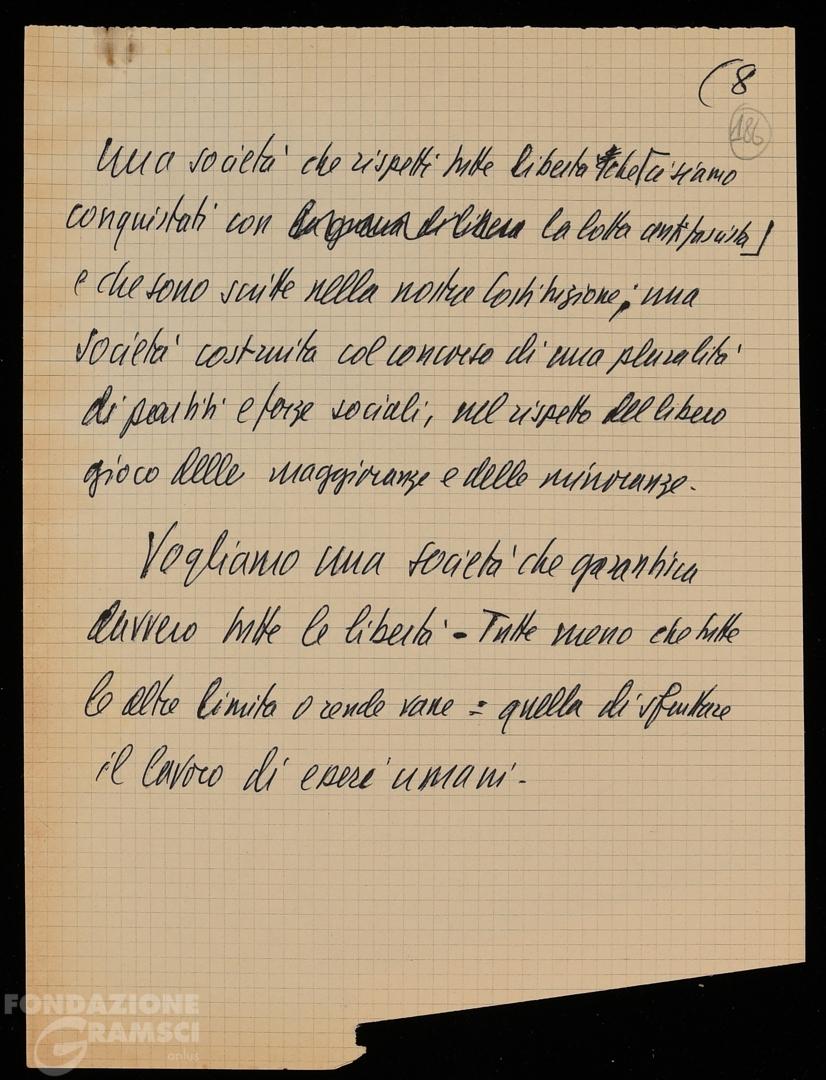 (8
186
Una società che rispetti tutte libertà che [ci siamo
conquistati con la guerra di libera la lotta antifascista]
e che sono scritte nella nostra Costituzione; una
società costruita col concorso di una pluralità
di partiti e forze sociali, nel rispetto del libero
gioco delle maggioranze e delle minoranze.
Vogliamo una società che garantisca
davvero tutte le libertà - Tutte meno che tutte
le altre limita o rende vane = quella di sfruttare
il lavoro di esseri umani -
FONDAZIONE
GRAMSCI
onlus